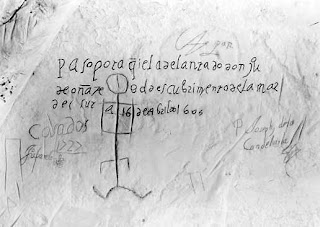 pasopora qi el adelantado don ju
de oñate del descubrimento de la mar
del sur a 16 de Abril do 1605
Casados
P Joseph de la
Candelaria